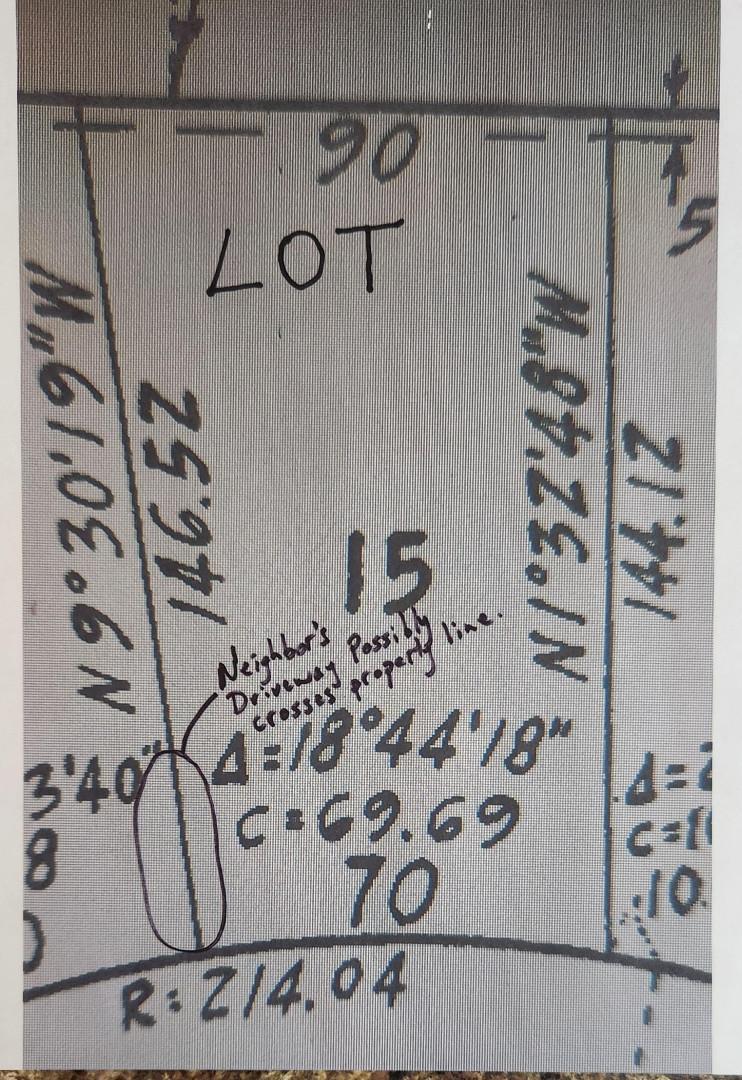 90
5
LOT
N 9°30'19"W
146.52
N1°32'48"W
144.12
15
Neighbor's
Driveway Possibly
crosses property line.
3'40"
8
Δ=18°44'18"
C=69.69
70
Δ=2
C=1
10
R=214.04